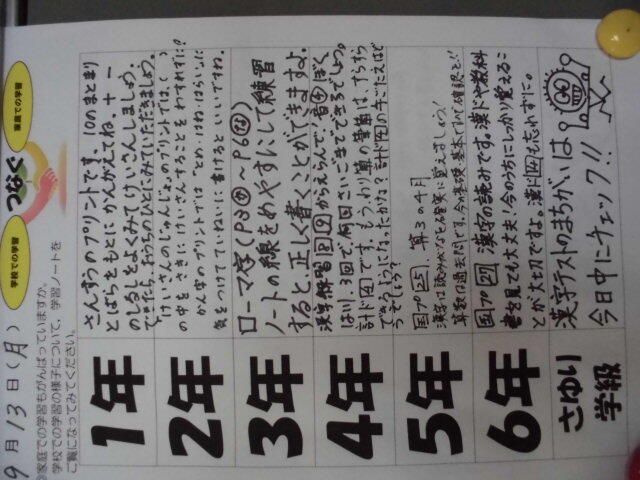 9月13日(月)
学校での学習
つなぐ
家庭での学習
家庭での学習もがんばっていますか。
学校での学習の様子について、学習ノートを
ご覧になってみてください。
1年
さんすうのプリントです。10のまとまり
とばらをもとにかんがえてね。+ー
のしるしをよくみてけいさんしましょう。
できたら、おうちのひとにみていただきましょう。
2年
けいさんのじゅんじょのプリントでは、( )
の中をさきにけいさんすることをわすれずに!
かん字のプリントでは"とめ・はね・はらい"に
気をつけてていねいに書けるといいですね。
3年
ローマ字(P3~P6)
ノートの線をめやすにして練習
すると、正しく書くことができますよ。
4年
漢字練習
からえらんで、
3回で、何回さいごまでできるでしょう。
計ド
です。もう、わり算の筆算は、ばっちり
できるようになったかな?
5年
国プ25、算3の4月
漢字は読みがなも確実に覚えましょう!
算数は過去問です。今の基礎・基本です。確認を!!
6年
国プ27、漢字の読みです。漢ドや教科
書を見ても大丈夫!今のうちにしっかり覚えるこ
とが大切ですよ。漢ド
も忘れずに。
さゆり
学級
漢字テストのまちがいは
今日中にチェック!!